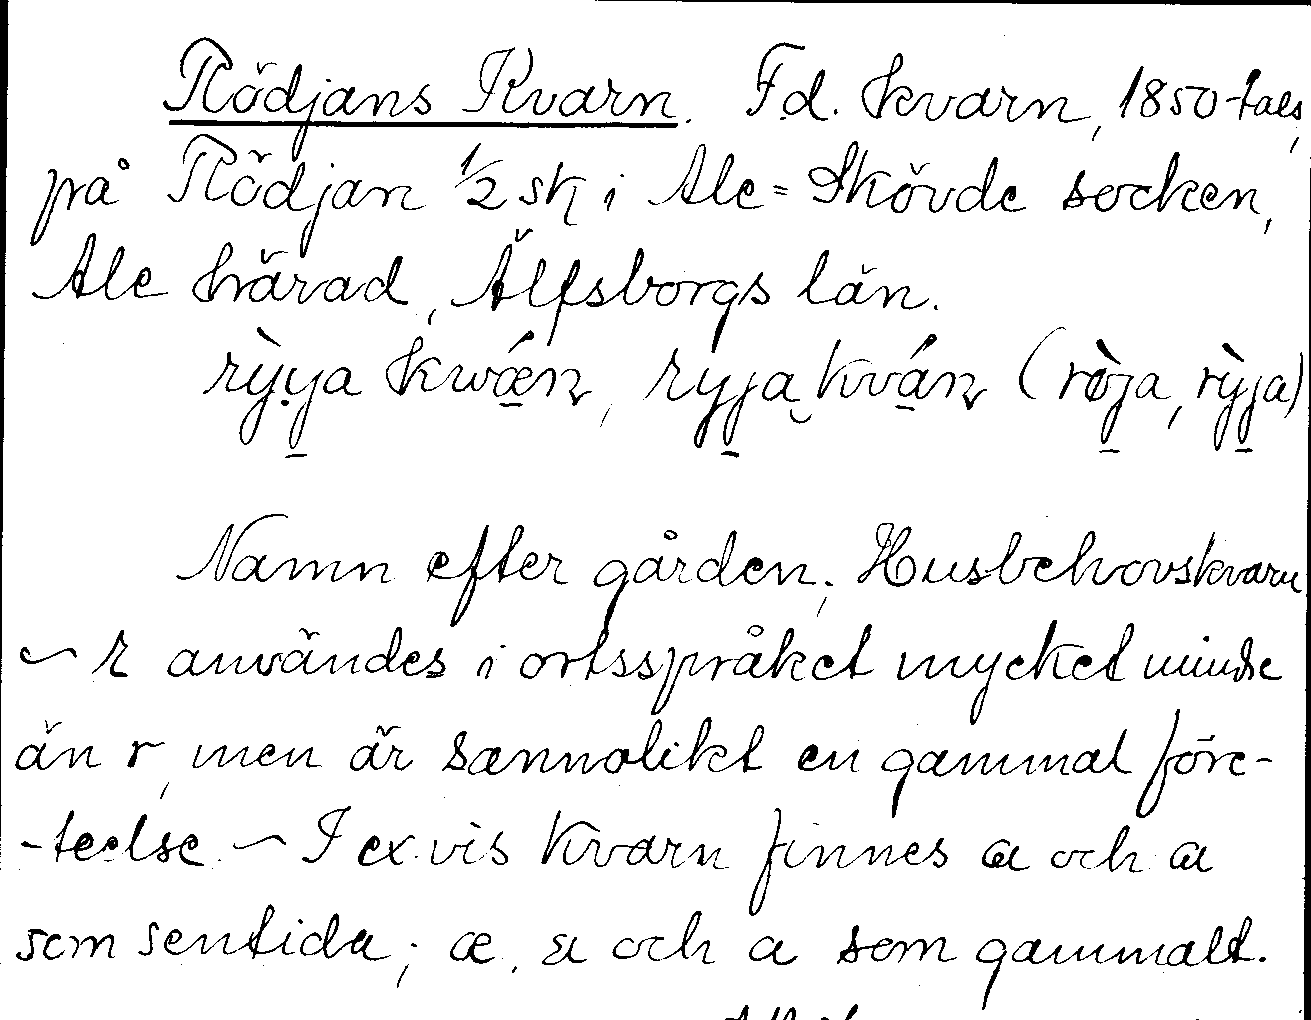 Rödjans Kvarn. F.d. kvarn, 1850-tals,
på Rödjan 1/2 sk i Ale-Skövde socken,
Ale härad, Älfsborgs län.
rỳya kwǽn, ryja kván (rø̀ja, rỳja)
Namn efter gården; Husbehovskvarn
~ r användes i ortsspråket mycket mindre
än r, men är sannolikt en gammal före-
-teelse. ~ I ex.vis kvarn finnes a och a
som sentida; æ, a och a som gammalt.